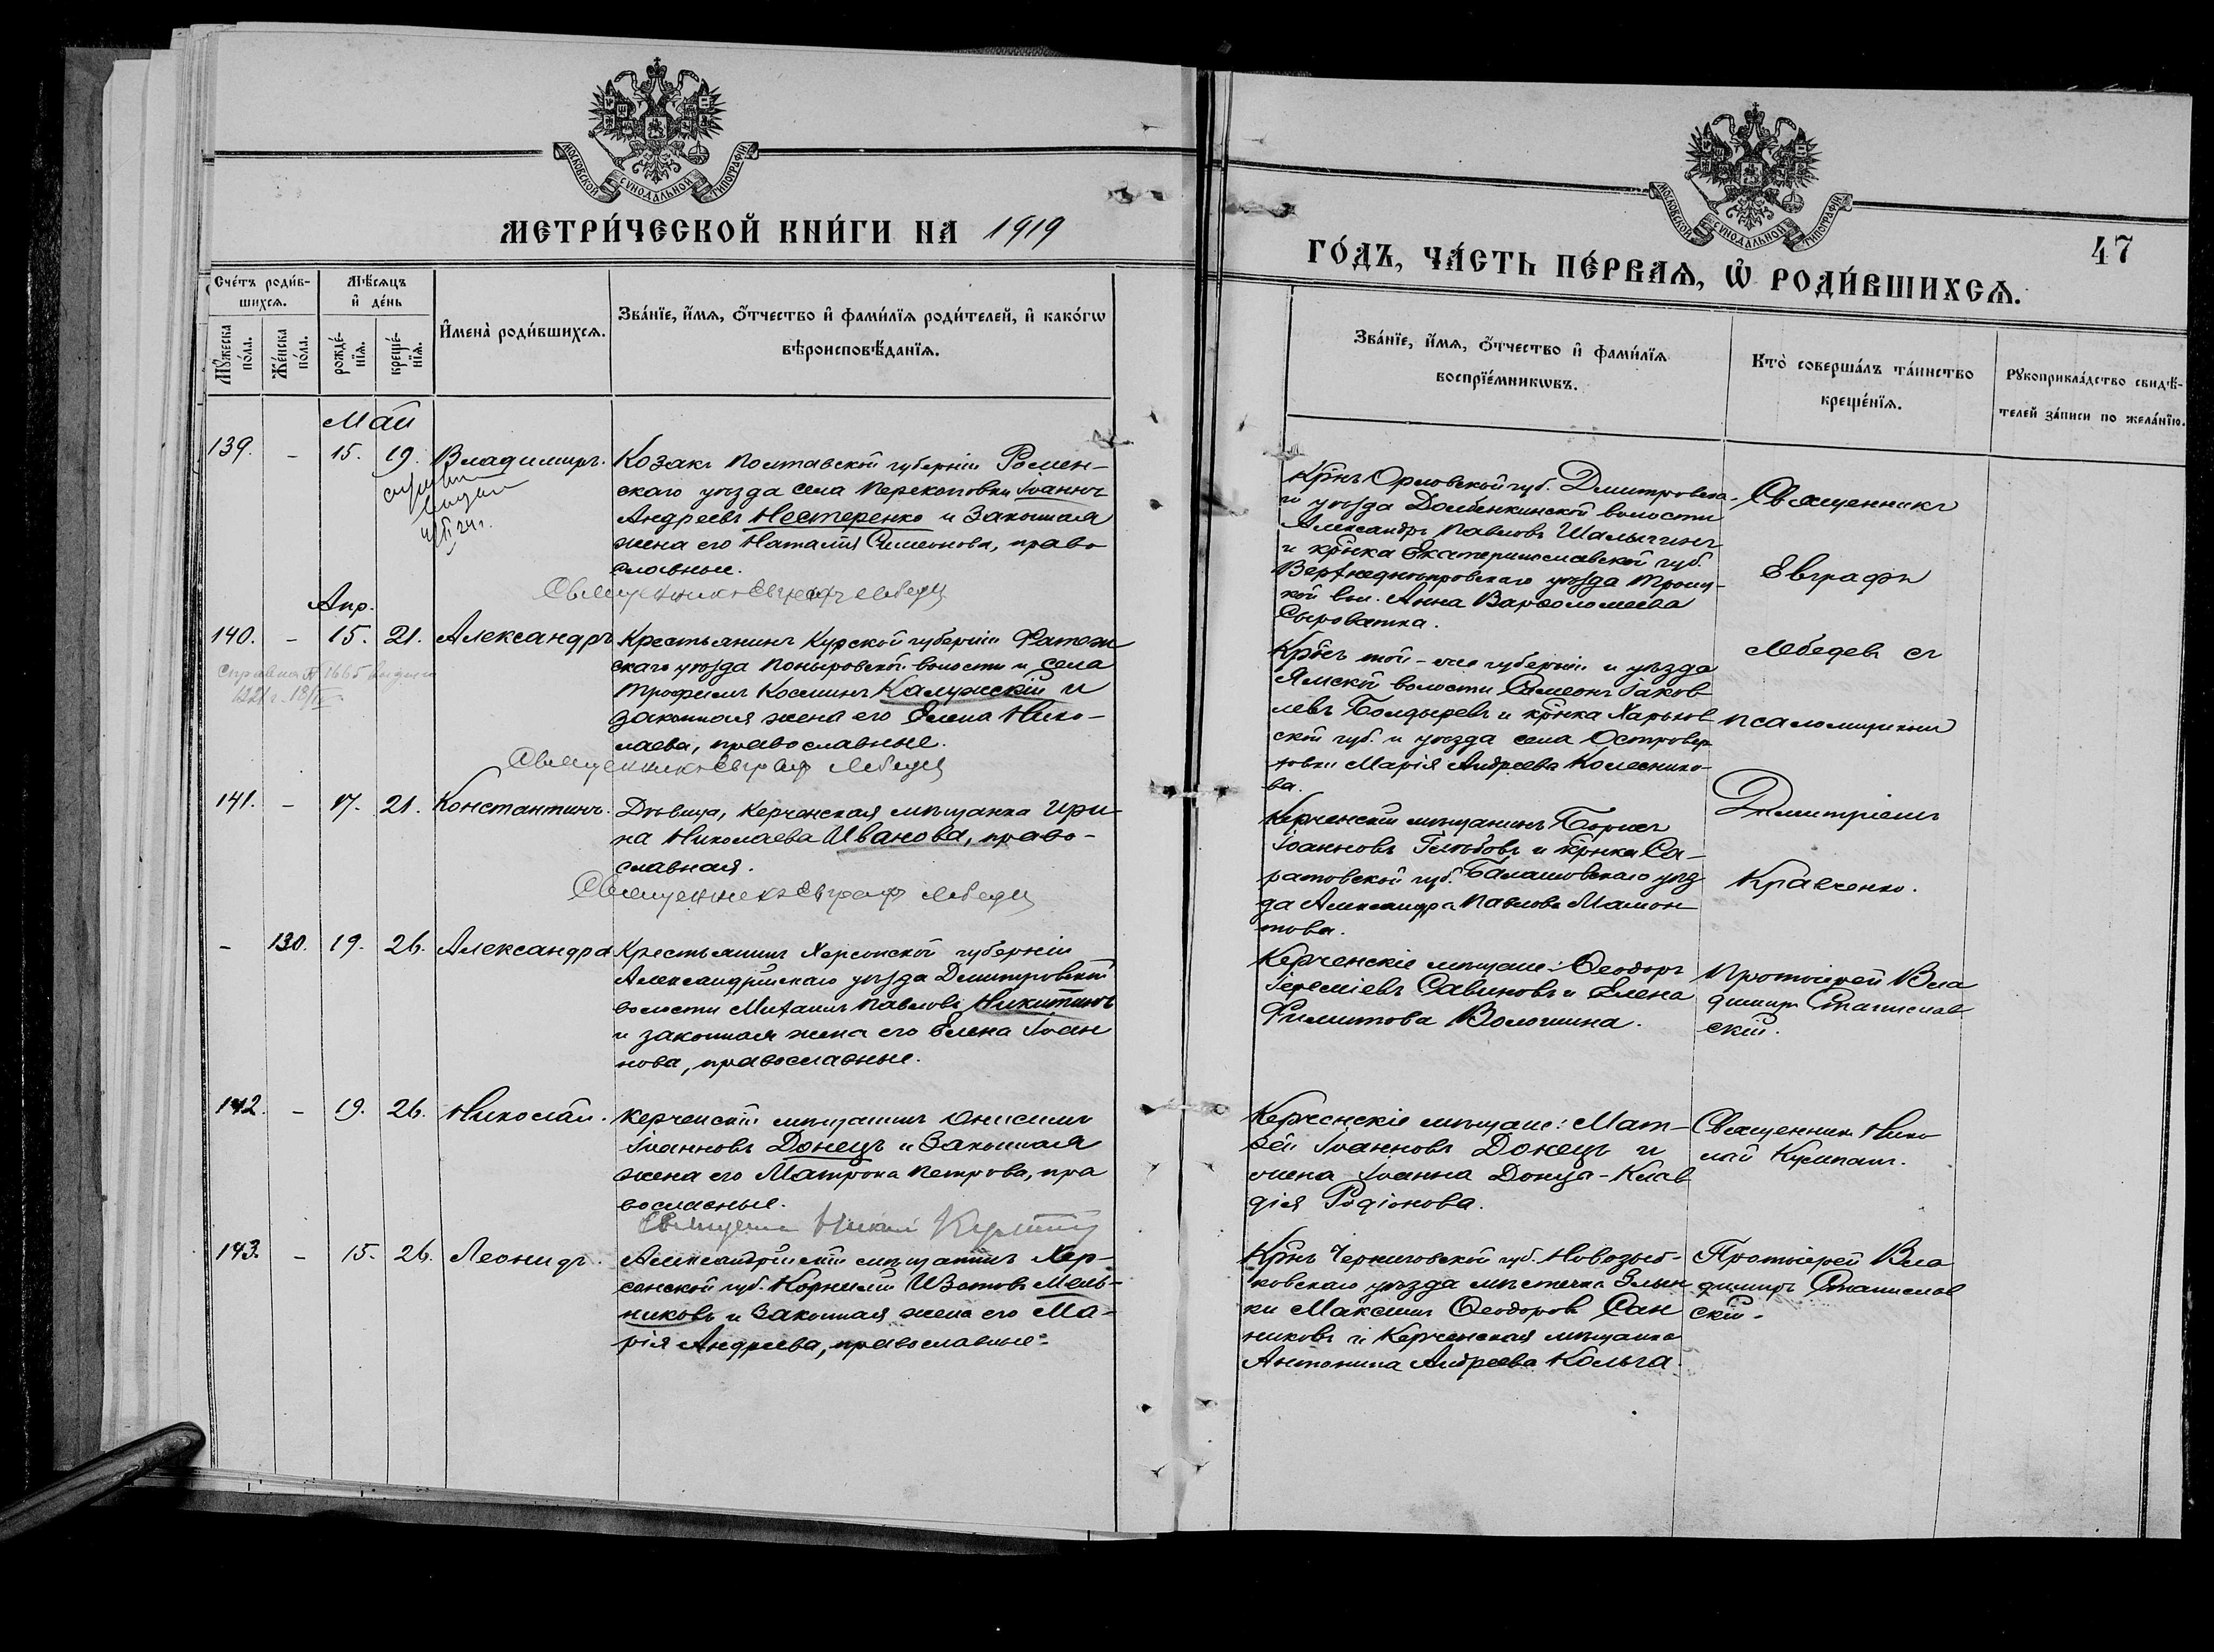 МОСКОВСКОЙ СѴНОДАЛЬНОЙ ТИПОГРАФІИ
МЕТРИ́ЧЕСКОЙ КНИ́ГИ НА 1919
Сче́тъ роди́в-
шихсѧ.
Мѣ́сѧцъ
и҆ де́нь
Мꙋ́жеска
по́ла.
Же́нска
по́ла.
рожде́-
нїѧ.
креще́-
нїѧ.
И҆мена̀ роди́вшихсѧ.
Зва́нїе, и҆́мѧ, ѻ҆́тчество и҆ фами́лїѧ роди́телей, и҆ како́гѡ
вѣроисповѣ́данїѧ.
Май
139. – 15. 19. Владимиръ.
Козакъ Полтавской губерніи Ромен-
скаго уѣзда села Перекоповки Іоаннъ
Андреевъ Нестеренко и законная
жена его Наталія Симеонова, право
славные.
Священникъ Евграфъ Лебедевъ
Апр.
140. – 15. 21. Александръ
справка № 1665 выдана
Крестьянинъ Курской губерніи Фатеж
скаго уѣзда Поныровской волости и села
Трофимъ Косминъ Калужскій и
законная жена его Елена Нико-
лаева, православные.
Священникъ Евграфъ Лебедевъ
141. – 17. 21. Константинъ.
Дѣвица, Керченская мѣщанка Ири-
на Николаева Иванова, право-
славная.
Священникъ Евграфъ Лебедевъ
– 130. 19. 26. Александра
Крестьянинъ Херсонской губерніи
Александрійскаго уѣзда Дмитровской
волости Михаилъ Павловъ Никитинъ
и законная жена его Елена Іоан
нова, православные.
142. – 19. 26. Николай.
Керченскій мѣщанинъ Онисимъ
Іоанновъ Донецъ и законная
жена его Матрона Петрова, пра
вославные.
Священникъ Николай
143. – 15. 26. Леонидъ.
Александрійскій мѣщанинъ Хер-
сонской губ. Корнилій Изотовъ Мель-
никовъ и законная жена его Ма-
рія Андреева, православные.
МОСКОВСКОЙ СѴНОДАЛЬНОЙ ТИПОГРАФІИ
47
ГО́ДЪ, ЧА́СТЬ ПЕ́РВАѦ, Ѽ РОДИ́ВШИХСѦ.
Зва́нїе, и҆́мѧ, ѻ҆́тчество и҆ фами́лїѧ
воспрїе́мникѡвъ.
Кто̀ соверша́лъ та́инство
креще́нїѧ.
Рꙋкоприкла́дство свидѣ́-
телей за́писи по жела́нїю.
Крнъ Орловской губ. Дмитровска-
го уѣзда Долбенкинской волости
Александръ Павловъ Шалыгинъ
и крнка Екатеринославской губ.
Верхнеднѣпровскаго уѣзда Троиц-
кой вол. Анна Варѳоломеева
Сыроватка.
Крнъ той-же губерніи и уѣзда
Ямской волости Симеонъ Іаков
левъ Болдыревъ и крнка Харьков
ской губ. и уѣзда села Островер
ховки Марія Андреева Колеснико-
ва.
Керченскій мѣщанинъ Борисъ
Іоанновъ Глѣбовъ и крнка Са-
ратовской губ. Балашовскаго уѣз
да Александра Павлова Мамон
това.
Священникъ
Евграфъ
Лебедевъ съ
псаломщикомъ
Димитріемъ
Кравченко.
Керченскіе мѣщане: Ѳеодоръ
Іереміевъ Савиновъ и Елена
Филиппова Волошина.
Протоіерей Вла
диміръ Станислав
скій.
Керченскіе мѣщане: Мат-
ѳей Іоанновъ Донецъ и
жена Іоанна Донца-Клав
дія Родіонова.
Священникъ Нико
лай
Крнъ Черниговской губ. Новозыб-
ковскаго уѣзда мѣстечка Злын
ки Максимъ Ѳеодоровъ Сан
никовъ и Керченская мѣщанка
Антонина Андреева Кольга.
Протоіерей Вла
диміръ Станислав
скій.